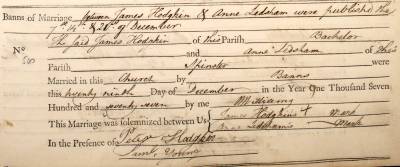 Banns of Marriage between James Hodgkin & Anne Ledsham were published the
7th 14th & 20th of December
The Said James Hodgkin of this Parish Bachelor
No and Anne Ledsham of this
Parish Spinster were
Married in this Church by Banns
this twenty ninth Day of December in the Year One Thousand Seven
Hundred and seventy seven by me
This Marriage was solemnized between Us James Hodgkins + Mark
Anne Ledshams Mark
In the Presence of Peter
Saml